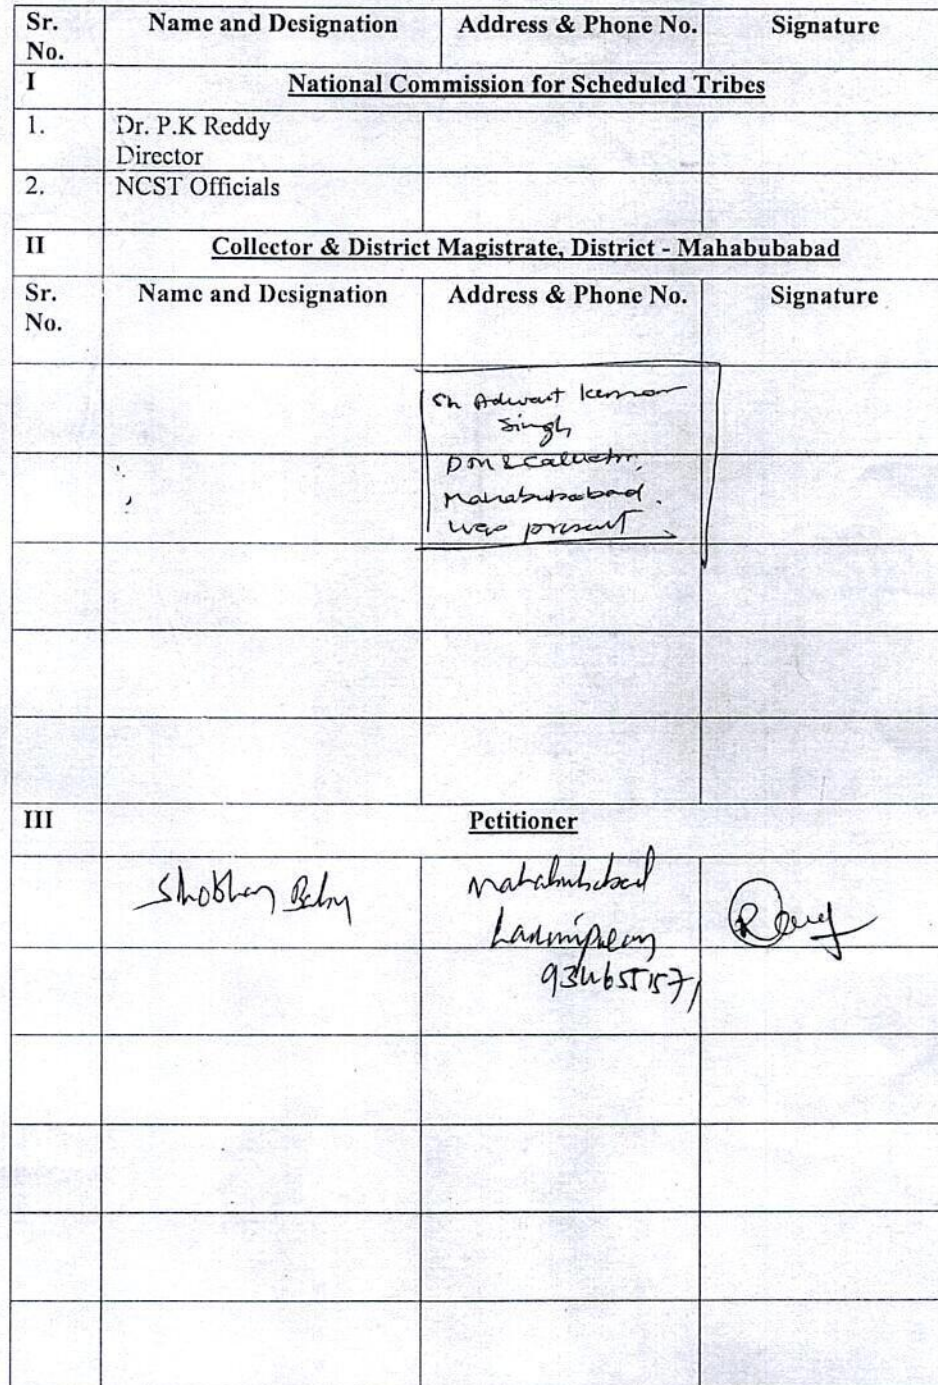 Sr. No. Name and Designation Address & Phone No. Signature
I National Commission for Scheduled Tribes
1. Dr. P.K Reddy
Director
2. NCST Officials
II Collector & District Magistrate, District - Mahabubabad
Sr. No. Name and Designation Address & Phone No. Signature
Sh Adwait Kumar
Singh
DM & Collector,
Mahabubabad.
was present
III Petitioner
Shobhan Babu Mahabubabad